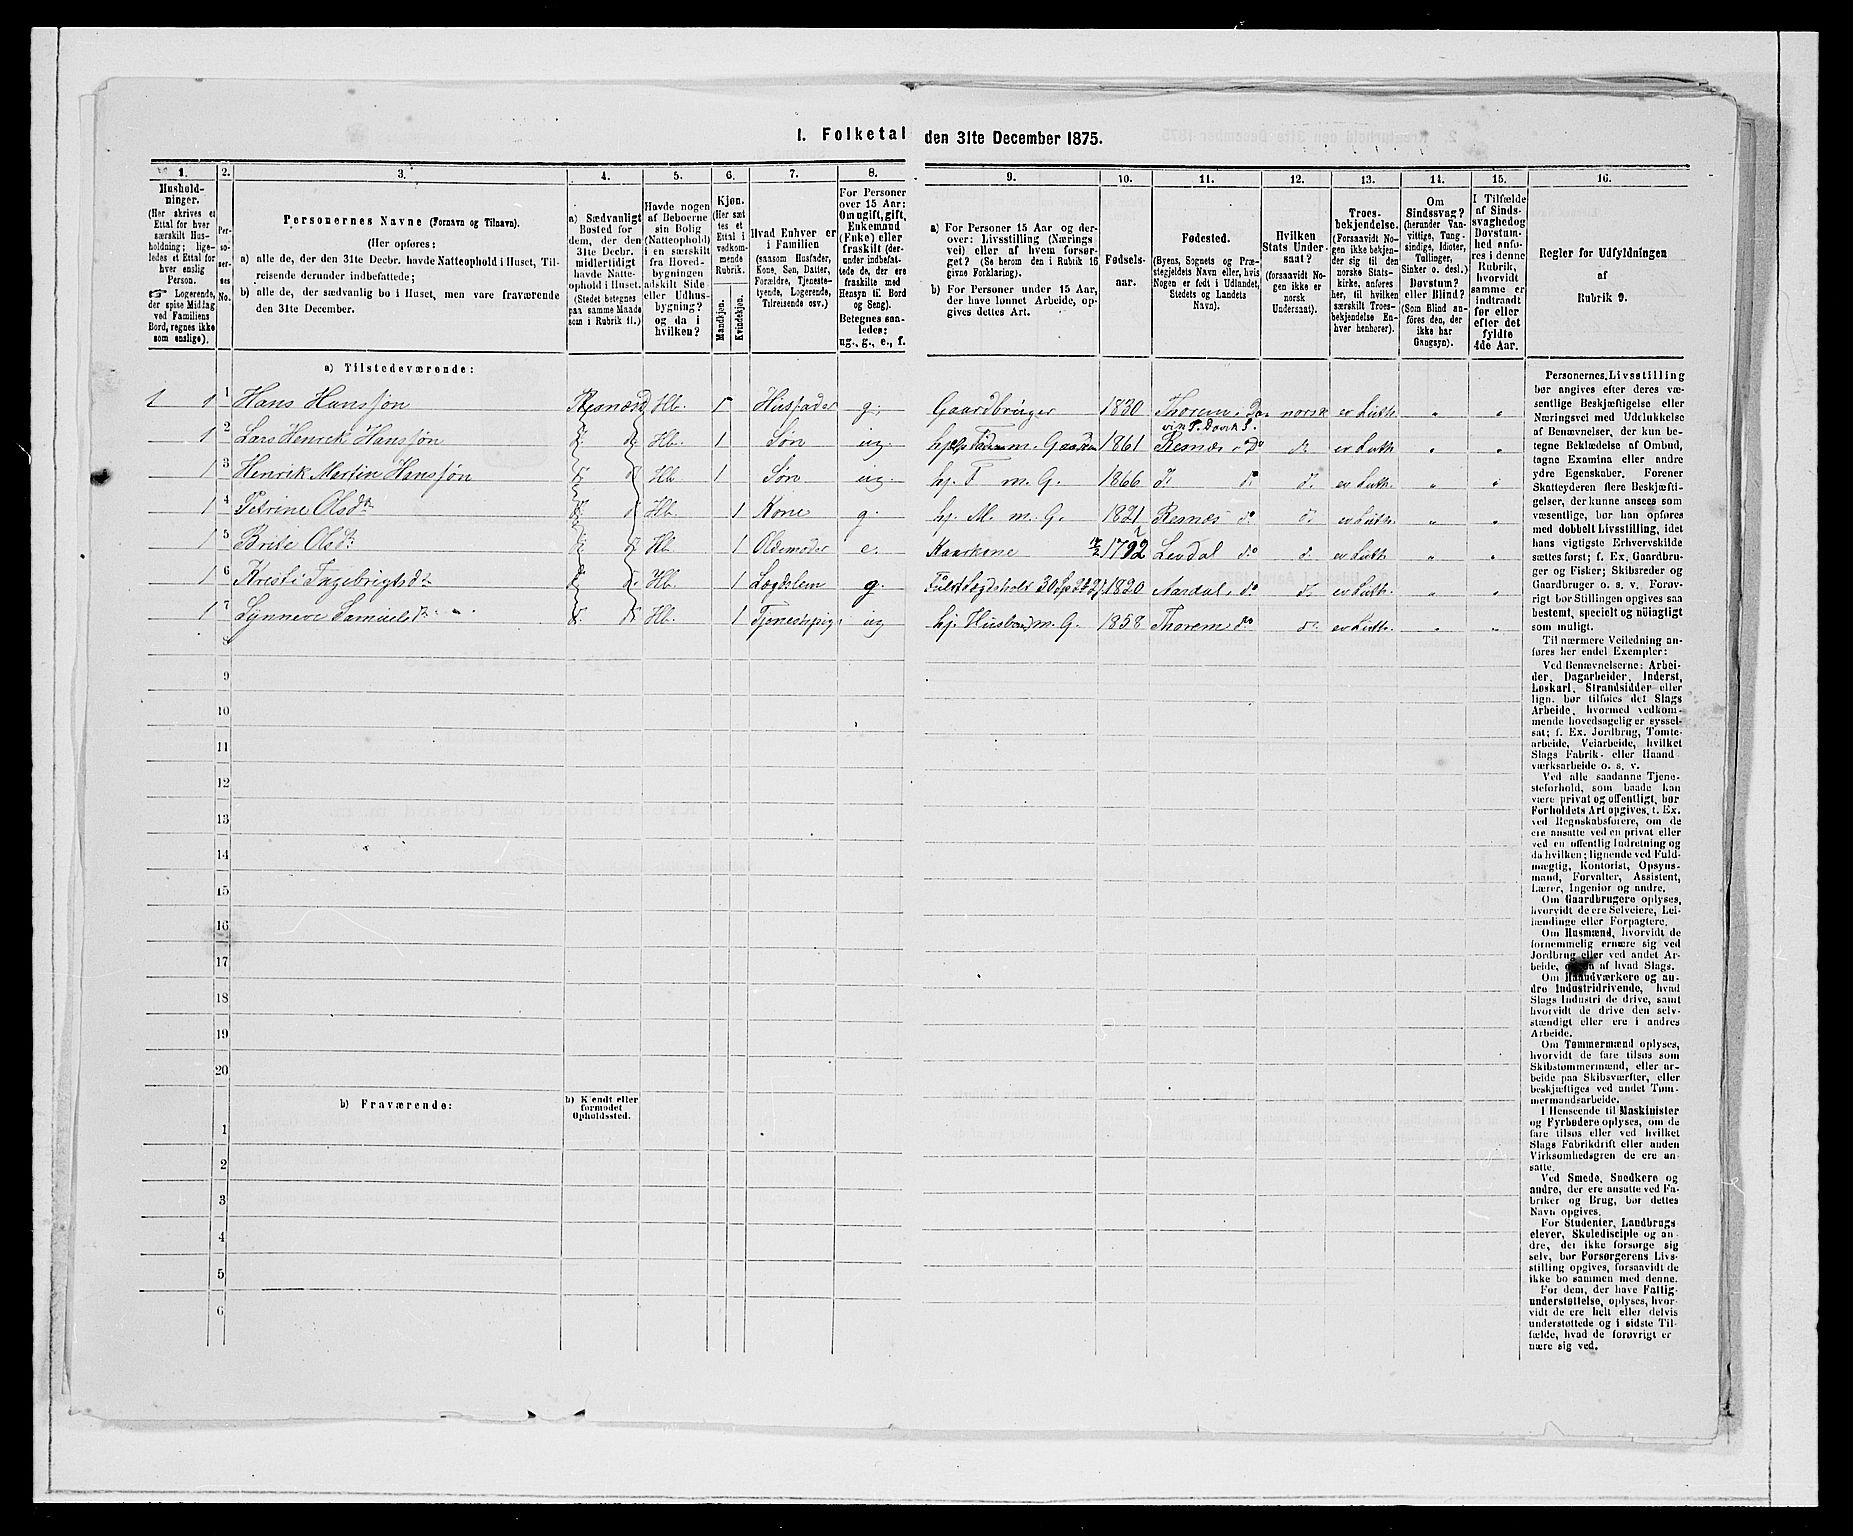 1. Folketal den 31te December 1875.
1. 2. 3. 4. 5. 6. 7. 8. 9. 10. 11. 12. 13. 14. 15. 16.
Hushold-
ninger.
(Her skrives et
Ettal for hver
særskilt Hus-
holdning; lige-
ledes et Ettal for
hver enslig
Person.
☞ Logerende,
der spise Middag
ved Familiens
Bord, regnes ikke
som enslige).
Per-
so-
ner-
nes
No.
Personernes Navne (Fornavn og Tilnavn).
(Her opføres:
a) alle de, der den 31te Decbr. havde Natteophold i Huset, Til-
reisende derunder indbefattede;
b) alle de, der sædvanlig bo i Huset, men vare fraværende
den 31te December.
a) Sædvanligt
Bosted for
dem, der den
31te Decbr.
midlertidigt
havde Natte-
ophold i Huset.
(Stedet betegnes
paa samme Maade
som i Rubrik 11.)
Havde nogen
af Beboerne
sin Bolig
(Natteophold)
i en særskilt
fra Hoved-
bygningen
adskilt Side
eller Udhus-
bygning?
og da i
hvilken?
Kjøn.
(Her sæt
tes et
Ettal i
vedkom-
mende
Rubrik.
Mandkjøn.
Kvindekjøn.
Hvad Enhver er
i Familien
(saasom Husfader,
Kone, Søn, Datter,
Forældre, Tjeneste-
tyende, Logerende,
Tilreisende osv.)
For Personer
over 15 Aar:
Om ugift, gift,
Enkemand
(Enke) eller
fraskilt (der-
under indbefat-
tede de, der ere
fraskilte med
Hensyn til Bord
og Seng).
Betegnes saa-
ledes:
ug., g., e., f.
a) For Personer 15 Aar og der-
over: Livsstilling (Nærings
vei) eller af hvem forsør-
get? (Se herom den i Rubrik 16
givne Forklaring).
b) For Personer under 15 Aar,
der have lønnet Arbeide, op-
gives dettes Art.
Fødsels-
aar.
Fødested.
(Byens, Sognets og Præ-
stegjeldets Navn eller, hvis
Nogen er født i Udlandet,
Stedets og Landets
Navn).
Hvilken
Stats Under-
saat?
(forsaavidt No-
gen ikke er
norsk
Undersaat).
Troes-
bekjendelse.
(Forsaavidt No-
gen ikke bekjen-
der sig til den
norske Stats-
kirke, anføres
her, til hvilken
særskilt Troes-
bekjendelse En-
hver henhører).
Om
Sindssvag?
(herunder Van-
vittige, Tung-
sindige, Idioter,
Tullinger,
Sinker o. desl.)
Døvstum?
eller Blind?
(Som Blind an-
føres den, der
ikke har
Gangsyn).
I Tilfælde
af Sinds-
svaghed og
Døvstum-
hed anfø-
res i denne
Rubrik,
hvorvidt
samme er
indtraadt
før eller
efter det
fyldte
4de Aar.
Regler for Udfyldningen
af
Rubrik 9.
a) Tilstedeværende:
1 1 1 Hans Hanssøn Hb. 1 Husfader g. Gaardbruger 1830 Thorem norsk ev Luth. „ „
1 2 Lars Henrik Hanssøn do do Hb. 1 Søn ug. 1861 Resnæs do do ev Luth. „ „
1 3 Henrik Martin Hanssøn do do Hb 1 Søn ug. hj. F m. G. 1866 do do do ev Luth. „ „
1 4 Petrine Olsdtr do do Hb. 1 Kone g. hj. M. m. G. 1821 Resnæs do do ev Luth. „ „
1 5 Brite Olsdtr do do Hb 1 Oldemoder e. Kaarkone 1792 do do ev Luth „ „
1 6 Kristi do do Hb. 1 Lægdslem g. 1820 Aardal do do ev Luth. „ „
1 7 Synneve Samuelsdtr do do Hb. 1 Tjenestepige ug hj. m. G. 1858 Thorem do do ev Luth. „ „
8
9
10
11
12
13
14
15
16
17
18
19
20
b) Fraværende:
b) Kjendt eller
formodet
Opholdssted.
1
2
3
4
5
6
Personernes Livsstilling
bør angives efter deres væ-
sentlige Beskjæftigelse eller
Næringsvei med Udelukkelse
af Benævnelser, der kun be-
tegne Beklædelse af Ombud,
tagne Examina eller andre
ydre Egenskaber. Forener
Skatteyderen flere Beskjæfti-
gelser, der kunne ansees som
væsentlige, bør han opføres
med dobbelt Livsstilling, idet
hans vigtigste Erhvervskilde
sættes først; f. Ex. Gaardbru-
ger og Fisker; Skibsreder og
Gaardbruger o. s. v. Forøv-
rigt bør Stillingen opgives saa
bestemt, specielt og nøiagtigt
som muligt.
Til nærmere Veiledning an-
føres her endel Exempler:
Ved Benævnelserne: Arbei-
der, Dagarbeider, Inderst,
Løskarl, Strandsidder eller
lign. bør tilføies det Slags
Arbeide, hvormed vedkom-
mende hovedsagelig er syssel-
sat; f. Ex. Jordbrug, Tomte-
arbeide, Veiarbeide, hvilket
Slags Fabrik- eller Haand
værksarbeide o. s. v.
Ved alle saadanne Tjene-
steforhold, som baade kan
være privat og offentligt, bør
Forholdets Art opgives, t. Ex.
ved Regnskabsførere, om de
ere ansatte ved en privat eller
ved en offentlig Indretning og
da hvilken; lignende ved Fuld-
mægtig, Kontorist, Opsyns-
mand, Forvalter, Assistent,
Lærer, Ingeniør og andre.
Om Gaardbrugere oplyses,
hvorvidt de ere Selveiere, Lei-
lændinge eller Forpagtere.
Om Husmænd, hvorvidt de
fornemmelig ernære sig ved
Jordbrug eller ved andet Ar-
beide, og da af hvad Slags.
Om Haandværkere og an-
dre Industridrivende, hvad
Slags Industri de drive, samt
hvorvidt de drive den selv-
stændigt eller ere i andres
Arbeide.
Om Tømmermænd oplyses,
hvorvidt de fare tilsøs som
Skibstømmermænd, eller ar-
beide paa Skibsværfter, eller
beskjæftiges ved andet Tøm-
mermandsarbeide.
I Henseende til Maskinister
og Fyrbødere oplyses, om de
fare tilsøs eller ved hvilket
Slags Fabrikdrift eller anden
Virksomhedsgren de ere an-
satte.
Ved Smede, Snedkere og
andre, der ere ansatte ved Fa-
briker og Brug, bør dettes
Navn opgives.
For Studenter, Landbrugs
elever, Skoledisciple og an-
dre, der ikke forsørge sig
selv, bør Forsørgerens Livs-
stilling opgives, forsaavidt de
ikke bo sammen med denne.
For dem, der have Fattig-
understøttelse, oplyses, hvor-
vidt de ere helt eller delvis
understøttede og i sidste Til-
fælde, hvad de forøvrigt er
nære sig ved.